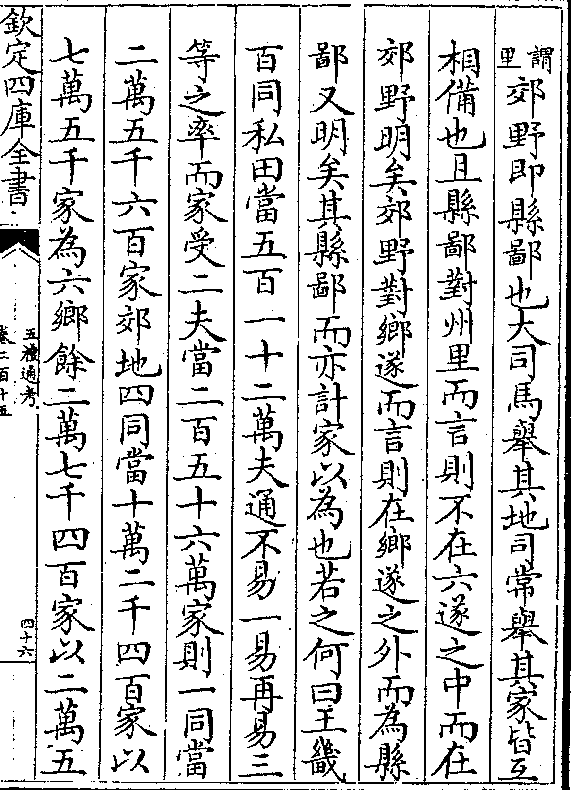 謂里郊野即縣鄙也大司馬舉其地司常舉其家皆互
相備也且縣鄙對州里而言則不在六遂之中而在
郊野明矣郊野對鄉遂而言則在鄉遂之外而為縣
鄙又明矣其縣鄙而亦計家以為也若之何曰王畿
百同私田當五百一十二萬夫通不易一易再易三
等之率而家受二夫當二百五十六萬家則一同當
二萬五千六百家郊地四同當十萬二千四百家以
七萬五千家為六鄉餘二萬七千四百家以二萬五
欽定四庫全書
五禮通考
卷二百十五
四十六